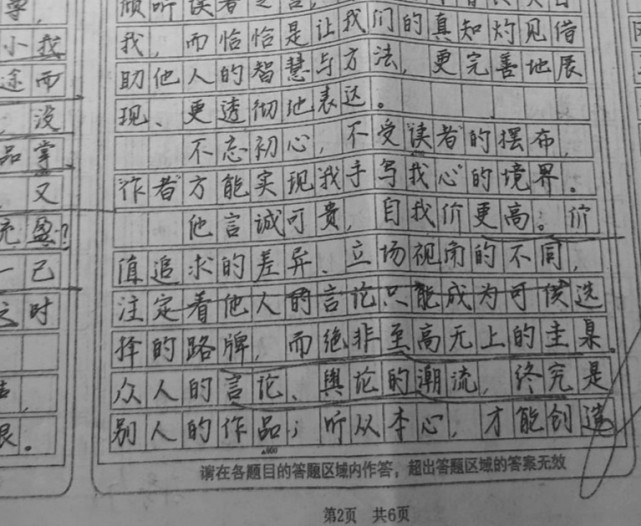 倾听读者之言，
小我
我，而恰恰是让我们的真知灼见借
途而
助他人的智慧与方法，更完善地展
没
现、更透彻地表达。
品掌
不忘初心，不受读者的摆布，
又
作者方能实现我手写我心的境界。
充盈？
他言诚可贵，自我价更高。价
一己
值追求的差异、立场视角的不同，
之时
注定着他人的言论只能成为可供选
择的路牌，而绝非至高无上的圭臬。
众人的言论、舆论的潮流，终究是
别人的作品；听从本心，才能创造
请在各题目的答题区域内作答，超出答题区域的答案无效
第2页 共6页